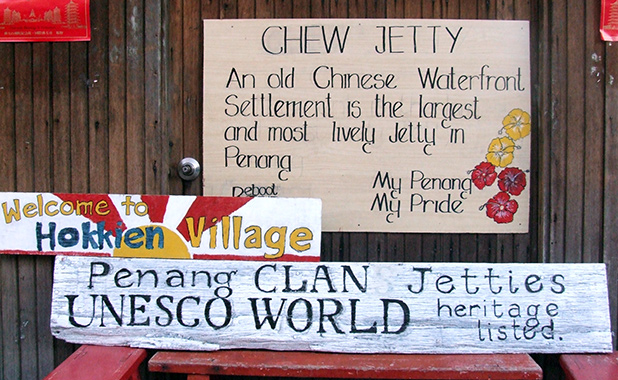 CHEW JETTY
An old Chinese Waterfront
Settlement is the largest
and most lively Jetty in
Penang
Deboot
My Penang
My Pride
Welcome to
Hokkien Village
Penang CLAN Jetties
UNESCO WORLD heritage
listed.